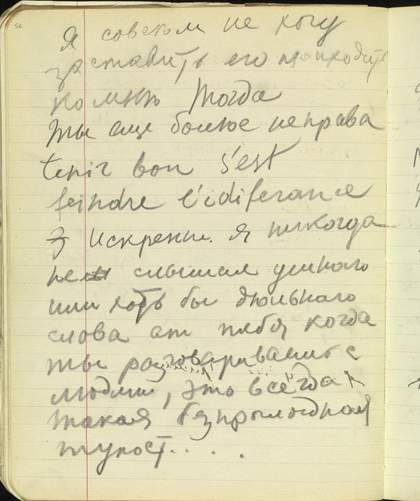 Я совсем не хочу
заставить его приходить
ко мню Тогда
ты еще более неправа
tenir bon s'est
feindre l'idiferance
Искренне я никогда
не слышал умного
или хоть бы дюльного
слова от тебя когда
ты разговариваешь с
людми, это всегда
такая безпросюдная
тупост....